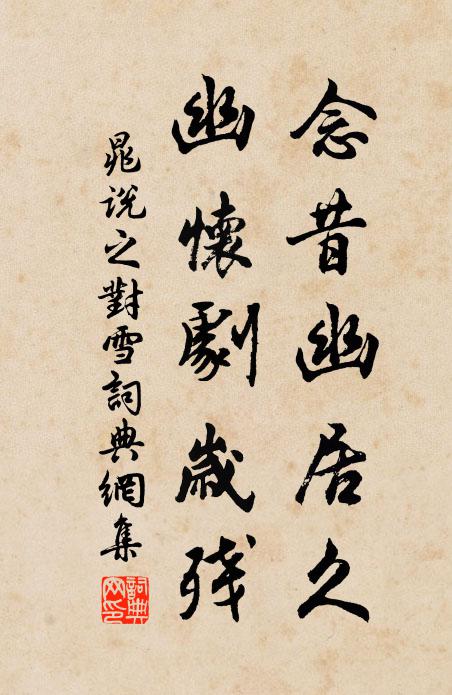 念昔幽居久
幽懷劇歲殘
晁說之對雪詞典網集
詞典網印